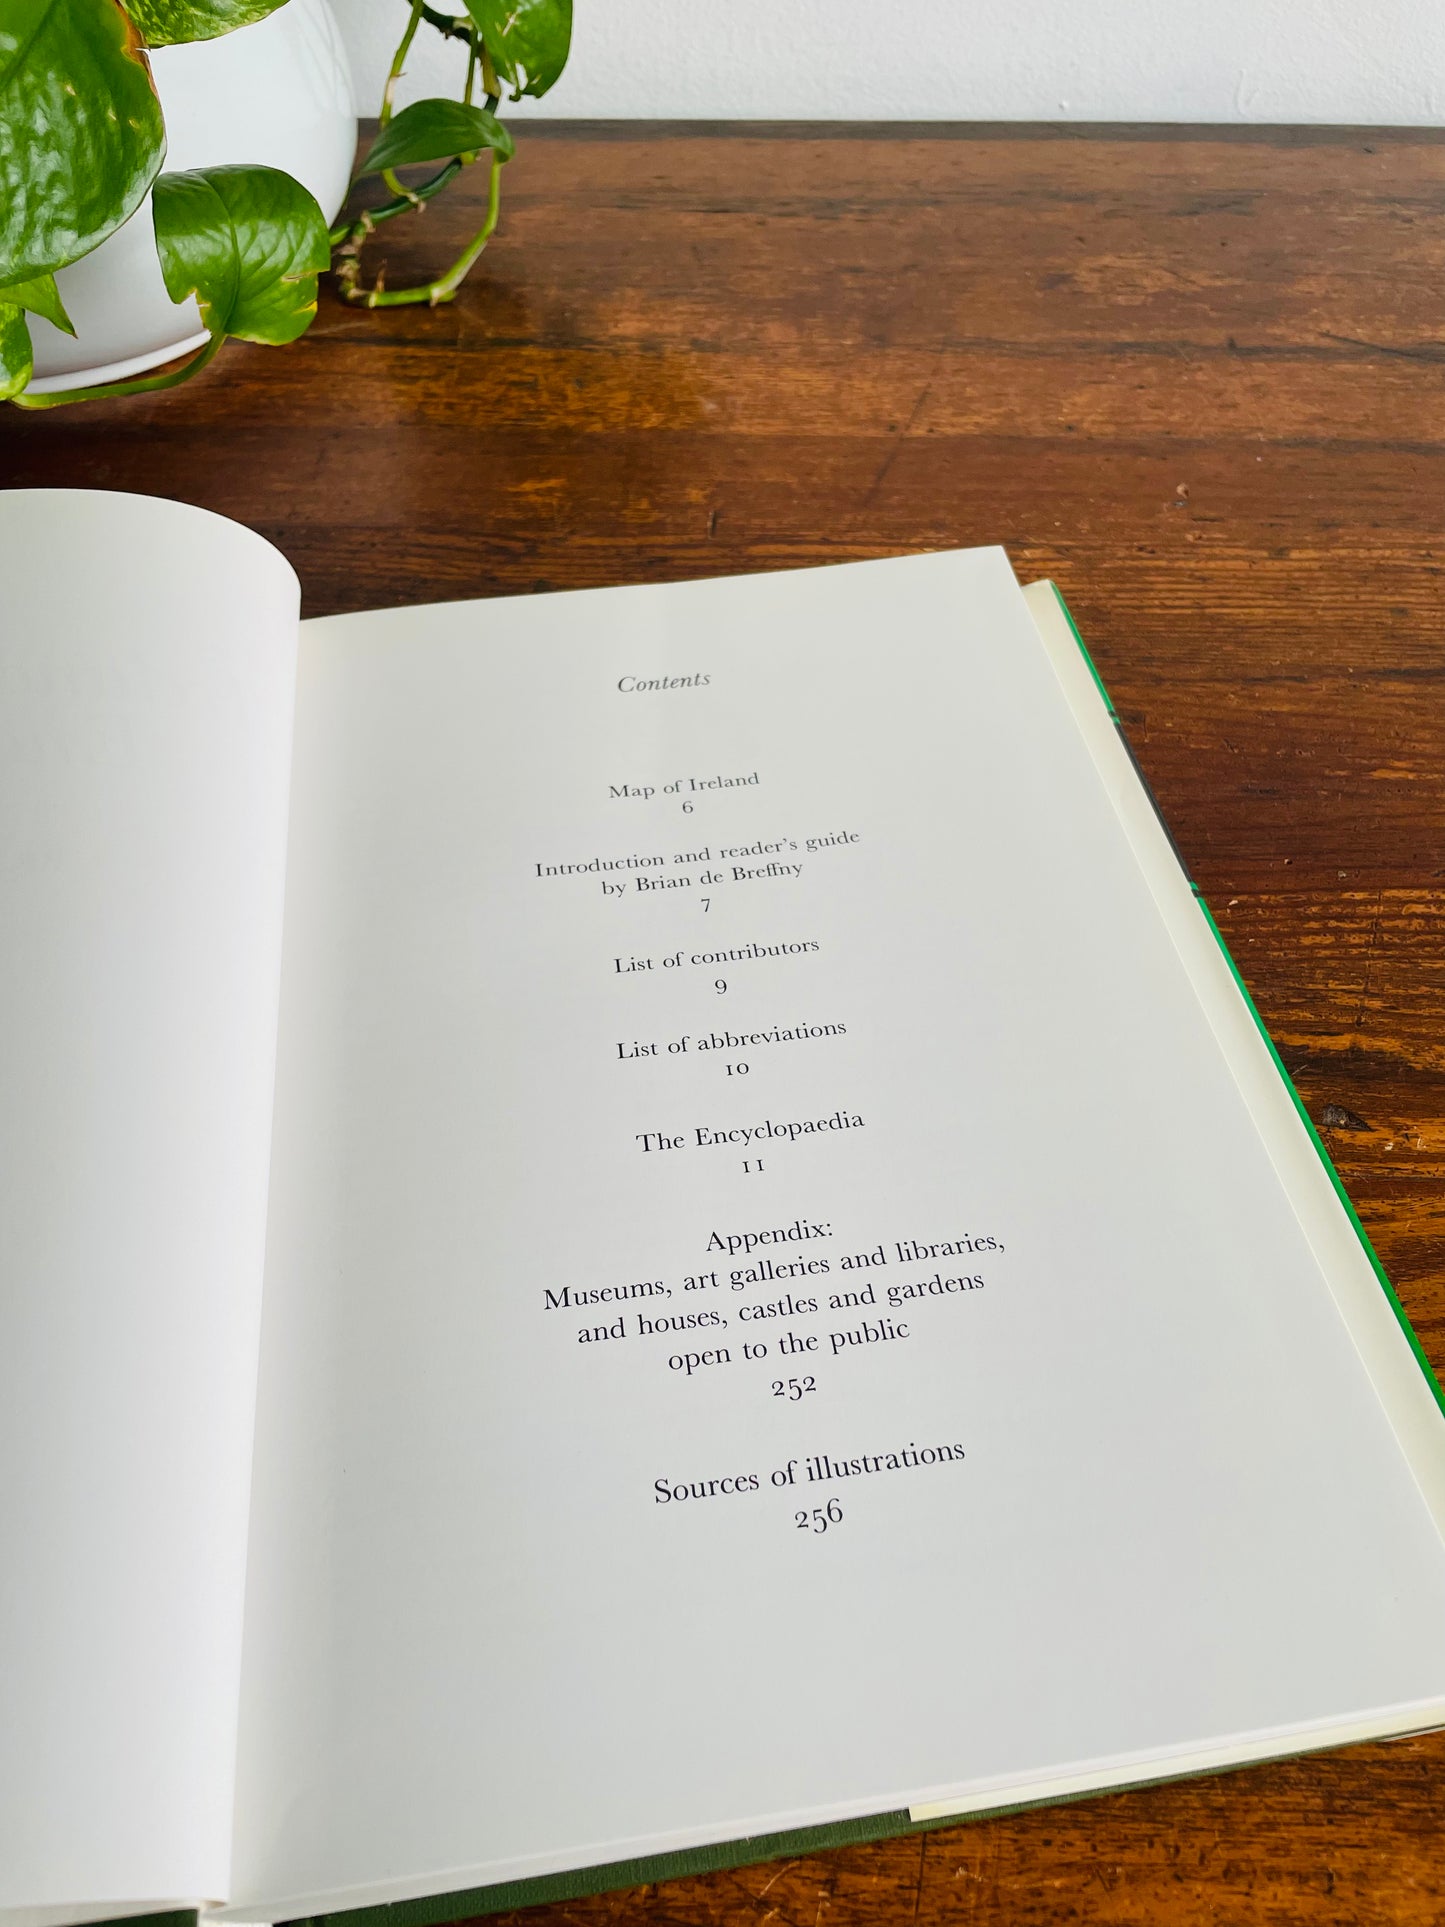 Contents
Map of Ireland
6
Introduction and reader's guide
by Brian de Breffny
7
List of contributors
9
List of abbreviations
10
The Encyclopaedia
11
Appendix:
Museums, art galleries and libraries,
and houses, castles and gardens
open to the public
252
Sources of illustrations
256